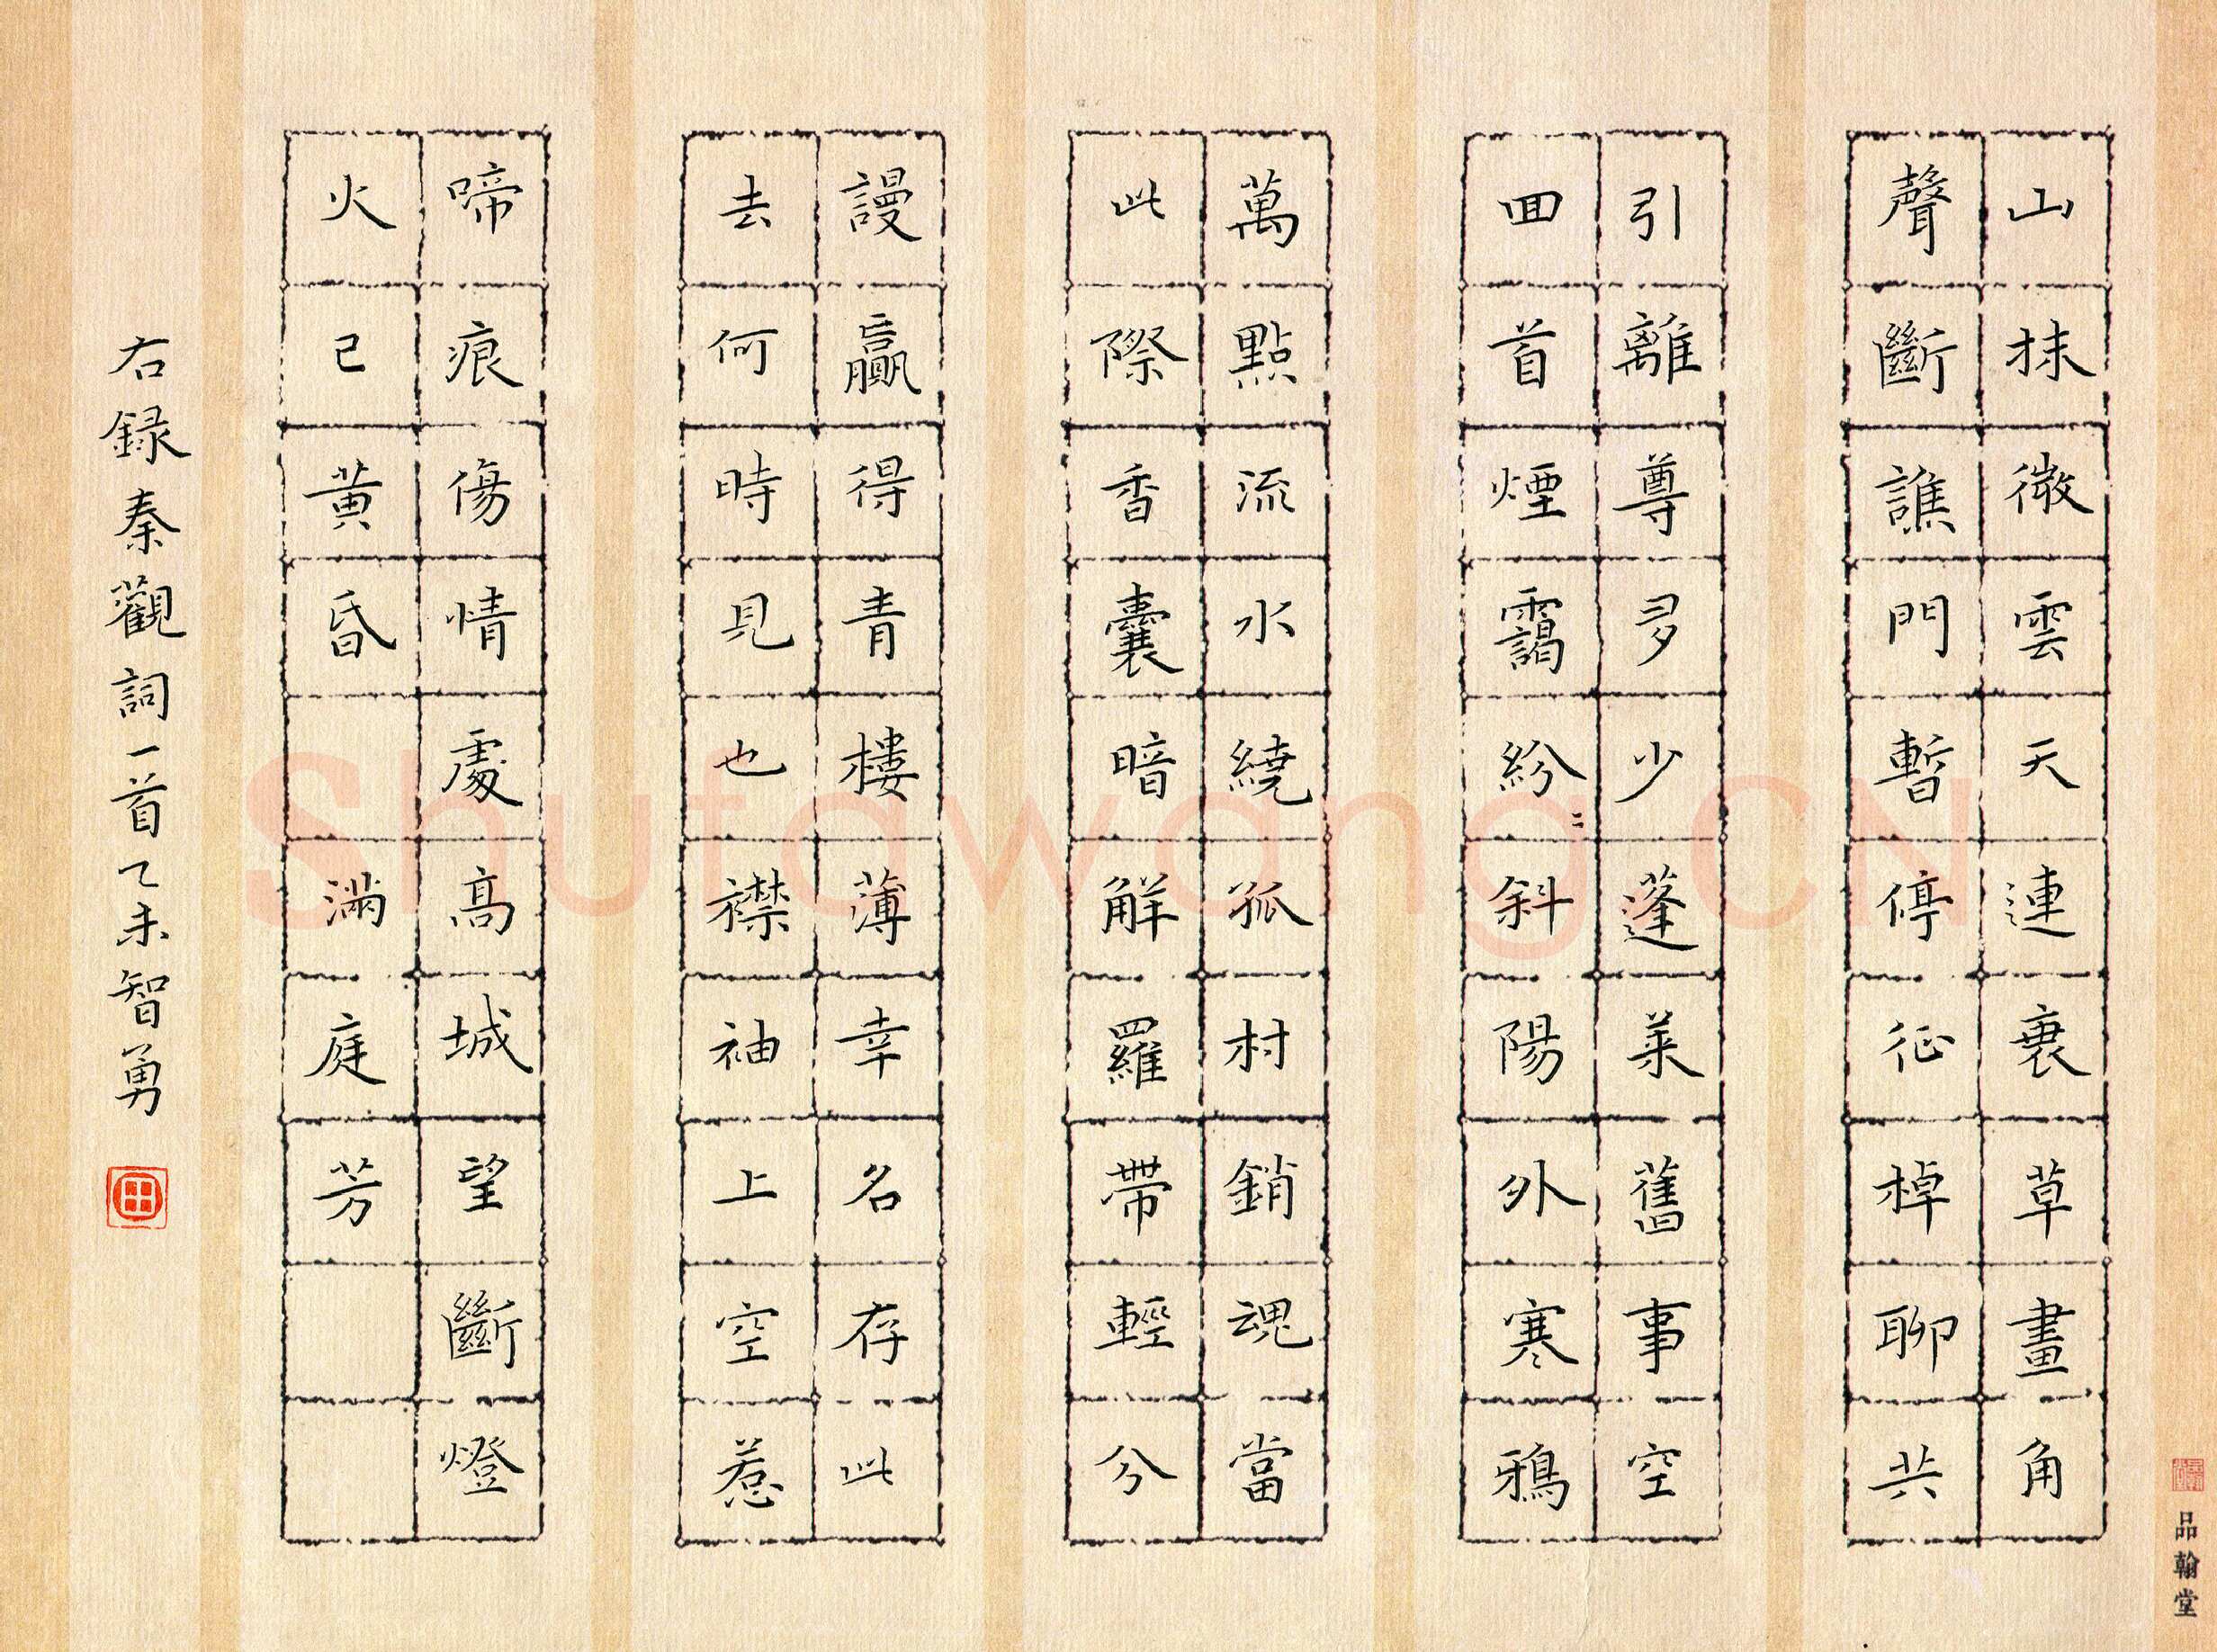 山抹微雲天連衰草畫角
聲斷譙門暫停征棹聊共
引離尊多少蓬萊舊事空
回首煙靄紛〻斜陽外寒鴉
萬點流水繞孤村銷魂當
此際香囊暗解羅帶輕分
謾贏得青樓薄幸名存此
去何時見也襟袖上空惹
啼痕傷情處高城望斷燈
火已黃昏 滿庭芳
右録秦觀詞一首乙未智勇
品翰堂
Shufawang.CN